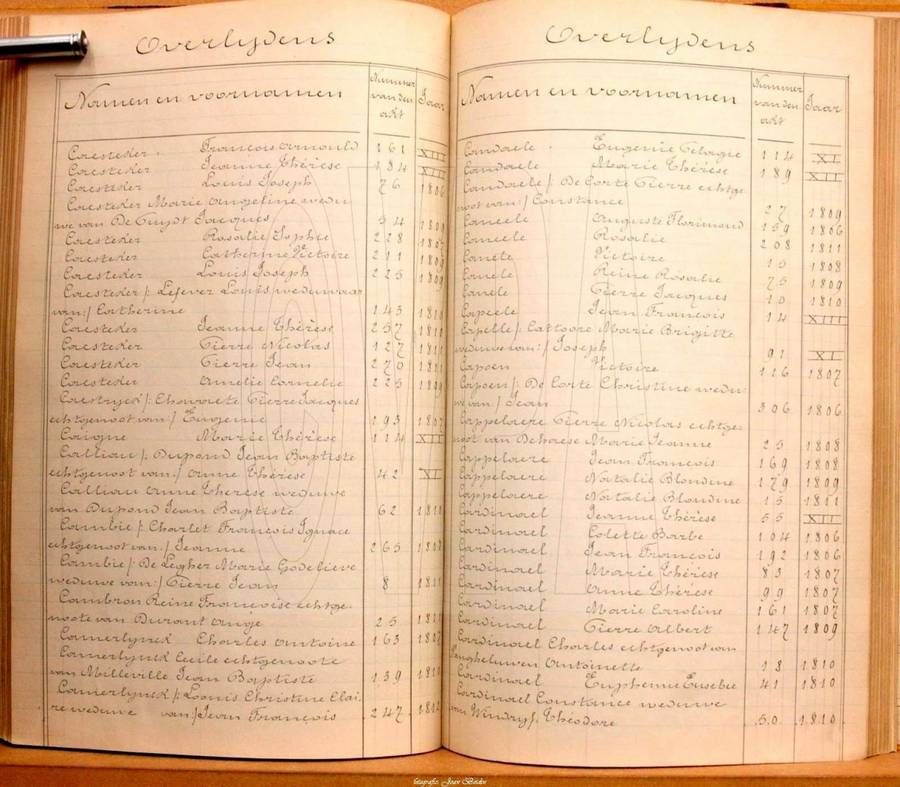 Overlijdens
Namen en voornamen Nummer van den akt Jaar
Caesteker François Arnould 161 XII
Caesteker Jeanne Thérèse 184 XII
Caesteker Louis Joseph 76 1806
Caesteker Marie Angeline wedu
we van De Cuydt Jacques 54
Caesteker Rosalie Sophie 228 1807
Caesteker Catherine Victoire 211 1809
Caesteker Louis Joseph 225 1809
Caesteker /: Lefever Louis weduwaar
van:/ Catherine 143 1810
Caesteker Jeanne Thérèse 257 1811
Caesteker Pierre Nicolas 127 1811
Caesteker Pierre Jean 270 1811
Caesteker Amelie Cornelie 223 1809
Caestryck /: Pierre Jacques
echtgenoot van:/ Eugenie 193 1807
Caigne Marie Thérèse 114 XII
Calliau /: Dupond Jean Baptiste
echtgenoot van:/ Anne Thérèse 42 XI
Calliau Anne Therese weduwe
van Dupond Jean Baptiste 62 1811
Cambie /: Charlet François Ignace
echtgenoot van:/ Jeanne 265
Cambie /: De Legher Marie Godelieve
weduwe van:/ Pierre Jean 8 1811
Cambron Reine Françoise echtge-
noote van Durant Ange 25
Camerlynck Charles Antoine 163 1807
Camerlynck Cecile echtgenoote
van Milleville Jean Baptiste 139 1810
Camerlynck /: Loonis Christine Clai-
re weduwe van:/ Jean François 247
Overlijdens
Namen en voornamen Nummer van den akt Jaar
Candaele Eugenie Pélagie 114 XI
Candaele Marie Thérèse 189 XII
Candaele /: De Corte Pierre echtge-
noot van:/ Constance 27 1809
Caneele Auguste Florimond 159 1806
Caneele Rosalie 208 1811
Canele Victoire 15 1808
Canele Reine Rosalie 75 1809
Canele Pierre Jacques 10 1810
Capeele Jean François 14 XIII
Capelle /: Cattoore Marie Brigitte
weduwe van:/ Joseph 91 XI
Capoen Victoire 126 1807
Capoen /: De Corte Christine wedu-
we van:/ Jean 306 1806
Cappelaere Pierre Nicolas echtge-
noot van Dehaese Marie Jeanne 25 1808
Cappelaere Jean François 169 1808
Cappelaere Natalie Blondine 179 1809
Cappelaere Natalie Blondine 15 1811
Cardinael Jeanne Thérèse 55 XII
Cardinael Colette Barbe 104 1806
Cardinael Jean François 192 1806
Cardinael Marie Thérèse 83 1807
Cardinael Anne Thérèse 99 1807
Cardinael Marie Caroline 161 1807
Cardinael Pierre Albert 147 1809
Cardinael Charles echtgenoot van
Antoinette 18 1810
Cardinael Euphemie Eusebie 41 1810
Cardinael Constance weduwe
van Théodore 50 1810
fotografie: Joan Beidts